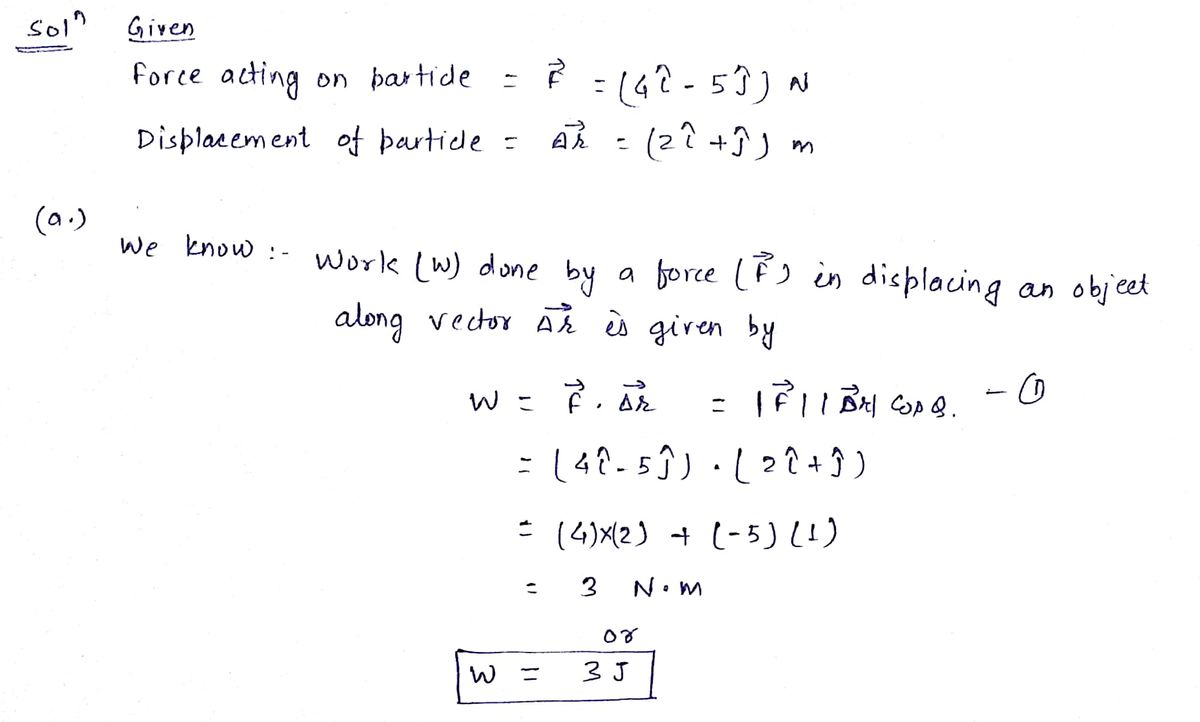 Solⁿ Given
Force acting on particle = F⃗ = (4î - 5ĵ) N
Displacement of particle = Δr⃗ = (2î + ĵ) m
(a.)
We know :- Work (W) done by a force (F⃗) in displacing an object
along vector Δr⃗ is given by
W = F⃗ . Δr⃗ = |F⃗| |Δr⃗| cos θ. - ①
= (4î - 5ĵ) . (2î + ĵ)
= (4)×(2) + (-5) (1)
= 3 N.m
or
W = 3 J